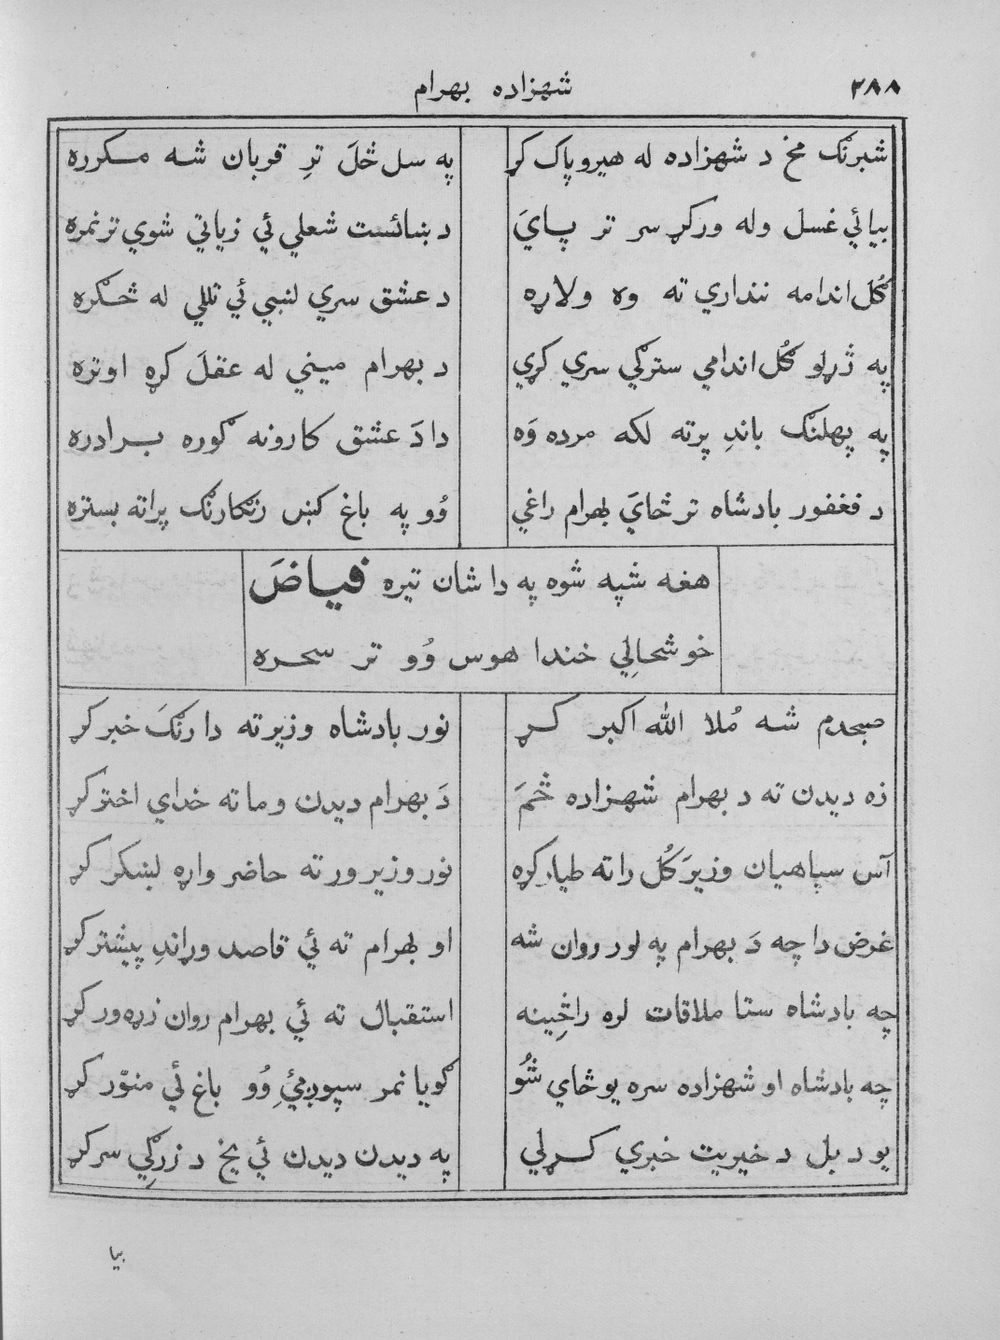 ٢٨٨ شهزاده بهرام
شبرنګ مخ د شهزاده له هیرو پاک کړ په سل ځلَ ترِ قربان شه مکرره
بیائي غسل وله ورکړ سر تر پایَ د ښائست شعلي ئي زیاتي شوي تر نمره
ګُل اندامه ننداري ته وه ولاړه د عشق سري لنبي ئي تللي له ځګره
په ژړلو ګُل اندامي سترګي سري کړي د بهرام میني له عقلَ کړه اوتره
په پهلنګ باندِ پرته لکه مرده وَه دا دَ عشق کارونه ګوره برادره
د فغفور بادشاه تر ځایَ بهرام راغي وُو په باغ کښ رنګارنګ پراته بستره
هغه شپه شوه په دا شان تیره فیاضَ
خوشحالِي خندا هوس وُو تر سحره
صبحدم شه مُلا الله اکبر کړ نور بادشاه وزیر ته دا رنګَ خبر کړ
زه دیدن ته د بهرام شهزاده ځمَ دَ بهرام دیدن و ما ته خدای اختر کړ
آس سپاهیان وزیرَ کُل را ته طیار کړه نور وزیر ور ته حاضر واړه لښکر کړ
غرض دا چه دَ بهرام په لور روان شه او بهرام ته ئي قاصد وړاندِ پیشتر کړ
چه بادشاه ستا ملاقات لره راځِینه استقبال ته ئي بهرام روان زړه ور کړ
چه بادشاه او شهزاده سره یو ځای شُو ګویا نمر سپوږمئِ وُو باغ ئي منوّر کړ
یو د بل د خیریت خبري کړلي په دیدن دیدن ئي یخ د زړګِي سر کړ
بیا